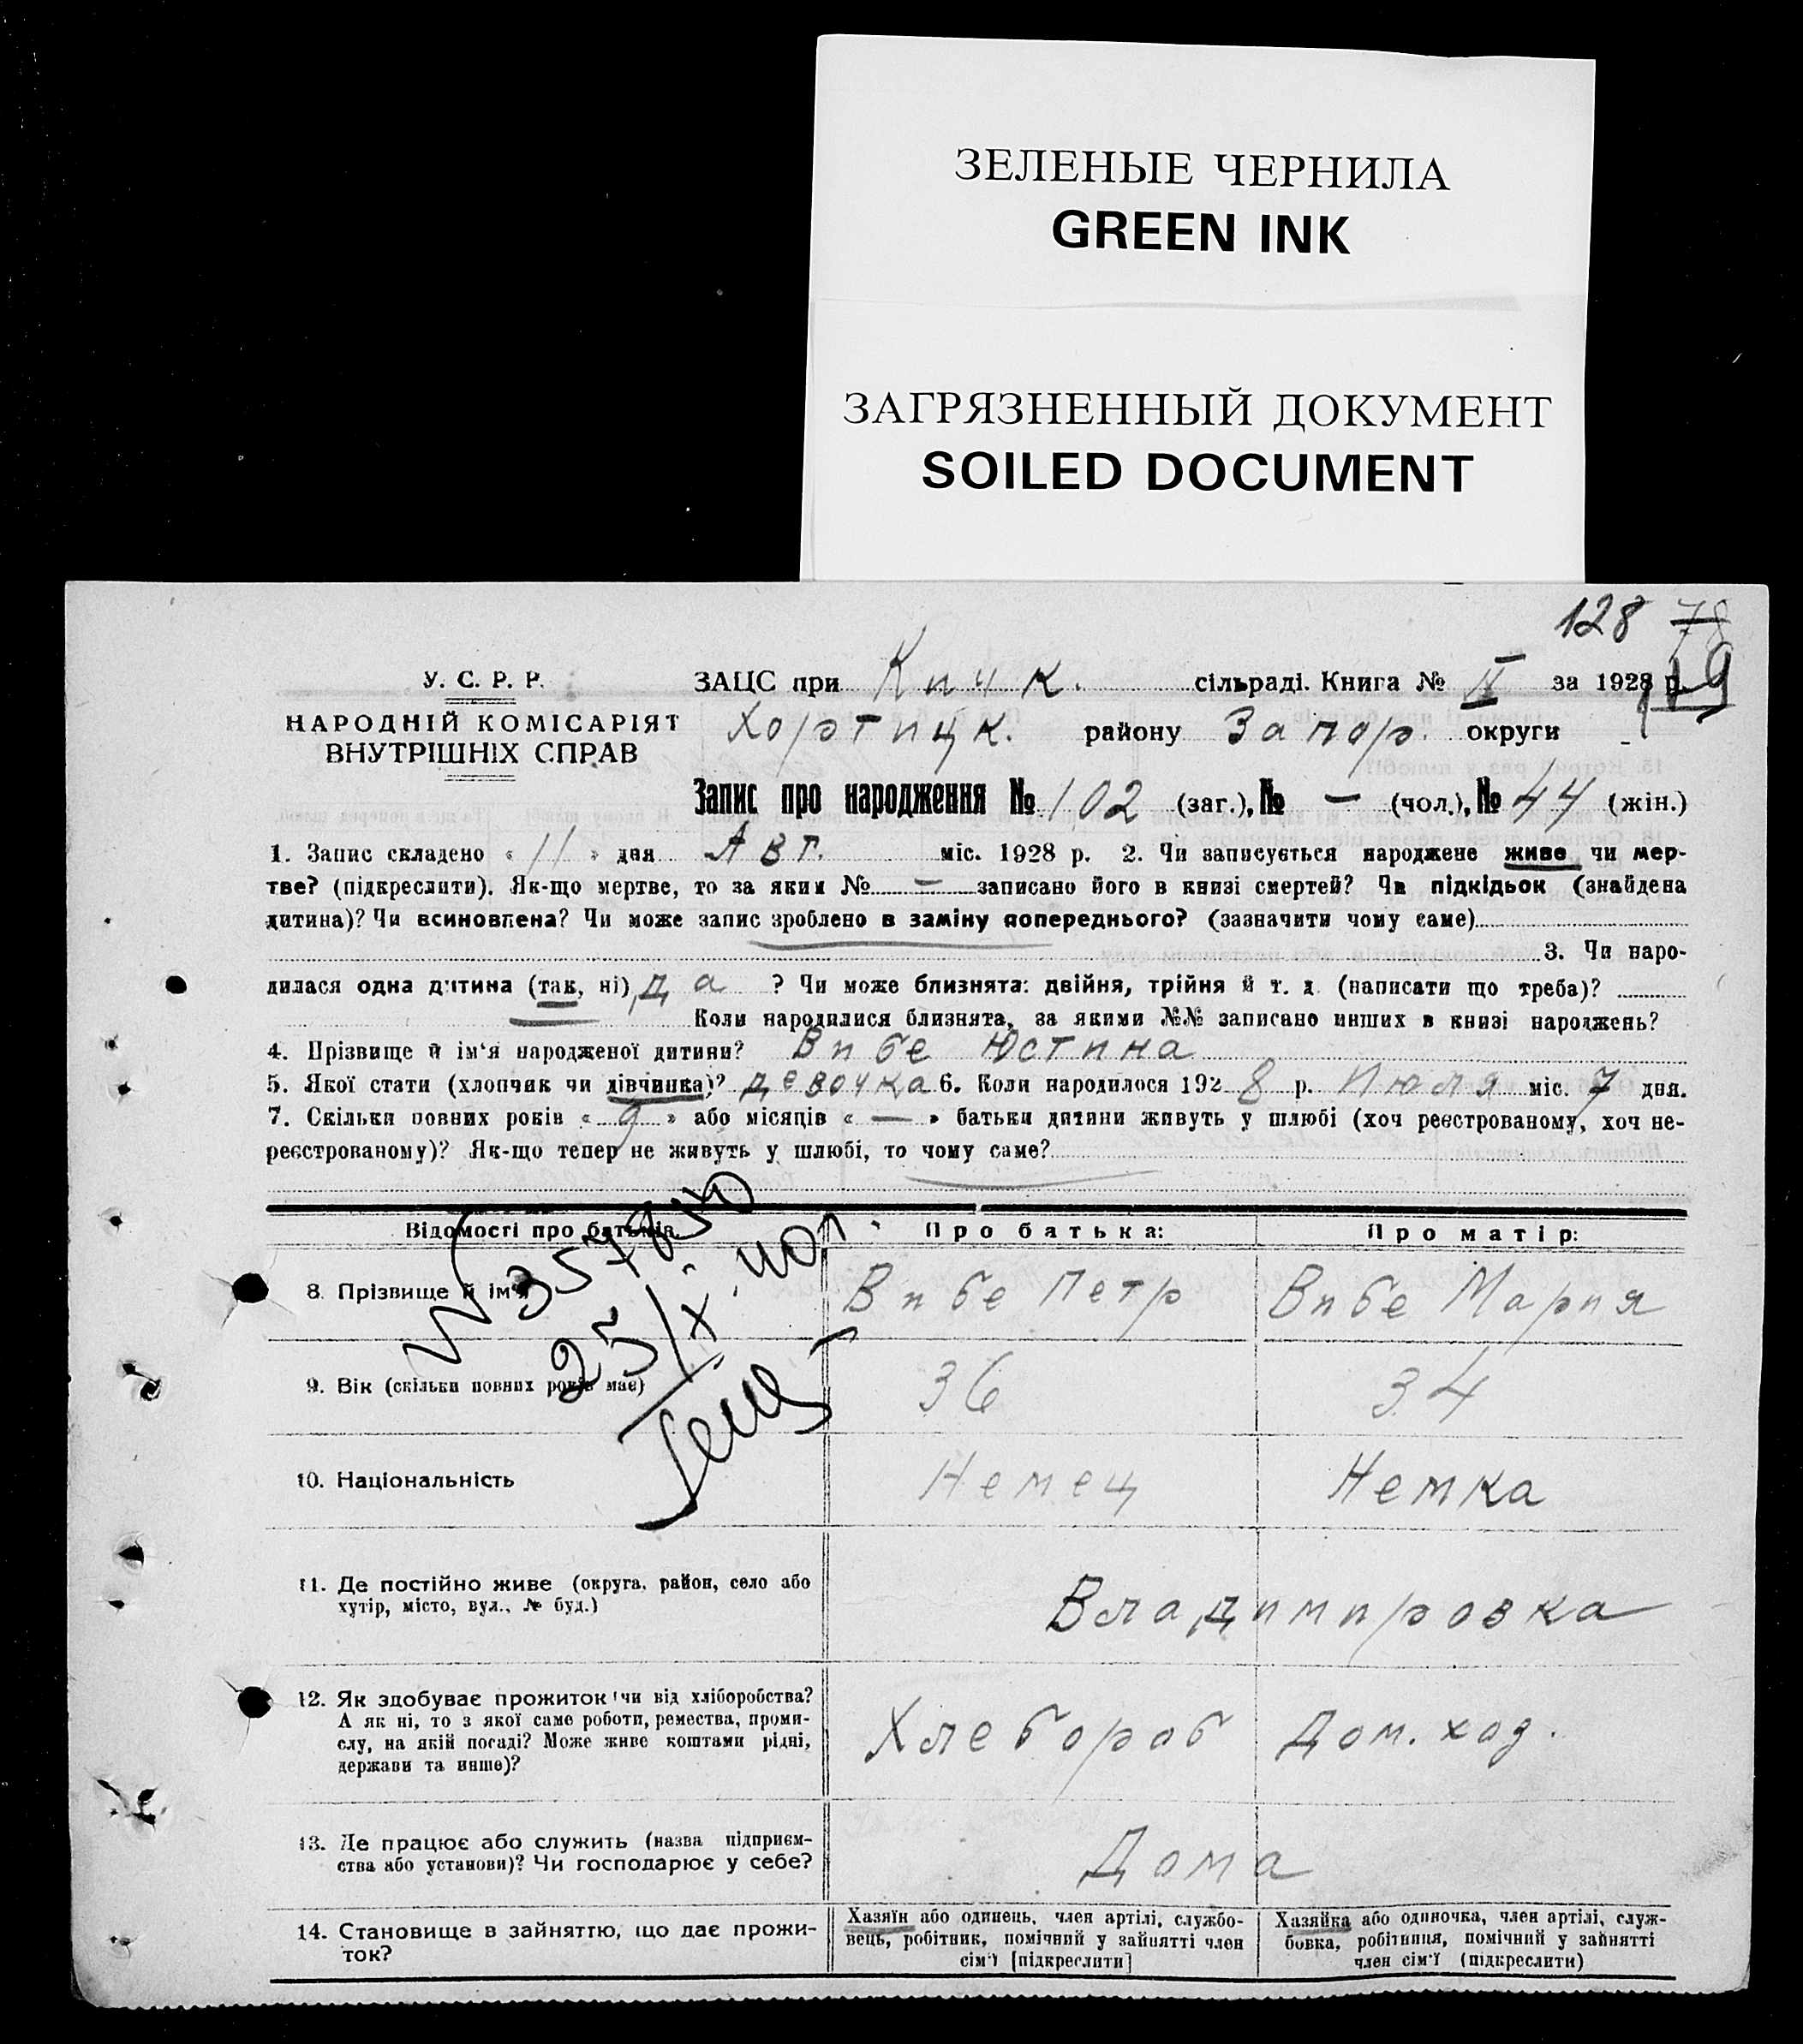 ЗЕЛЕНЫЕ ЧЕРНИЛА
GREEN INK
ЗАГРЯЗНЕННЫЙ ДОКУМЕНТ
SOILED DOCUMENT
128 78
У. С. Р. Р.
НАРОДНІЙ КОМІСАРІЯТ
ВНУТРІШНІХ СПРАВ
ЗАЦС при Кичк. сільраді. Книга № II за 1928 р.
Хортицк. району Запор. округи
Запис про народження № 102 (заг.), № — (чол.), № 44 (жін.)
1. Запис складено « 11 » дня Авг. міс. 1928 р. 2. Чи записується народжене живе чи мер-
тве? (підкреслити). Як-що мертве, то за яким № — записано його в книзі смертей? Чи підкідьок (знайдена
дитина)? Чи всиновлена? Чи може запис зроблено в заміну попереднього? (зазначити чому саме)
3. Чи наро-
дилася одна дитина (так, ні) да ? Чи може близнята: двійня, трійня й т. д. (написати що треба)?
Коли народилися близнята, за якими №№ записано инших в книзі народжень?
4. Прізвище й ім'я народженої дитини? Вибе Юстина
5. Якої стати (хлопчик чи дівчинка)? девочка 6. Коли народилося 1928 р. Июля міс. 7 дня.
7. Скільки повних років « 9 » або місяців « — » батьки дитини живуть у шлюбі (хоч реєстрованому, хоч не-
реєстрованому)? Як-що тепер не живуть у шлюбі, то чому саме?
Відомості про батьків Про батька: Про матір:
8. Прізвище й ім'я Вибе Петр Вибе Мария
25/X
9. Вік (скільки повних років має) 36 34
10. Національність Немец Немка
11. Де постійно живе (округа, район, село або
хутір, місто, вул., № буд.)
Владимировка
12. Як здобуває прожиток (чи від хліборобства?
А як ні, то з якої саме роботи, ремества, проми-
слу, на якій посаді? Може живе коштами рідні,
держави та инше)?
Хлебороб Дом. хоз.
13. Де працює або служить (назва підприєм-
ства або установи)? Чи господарює у себе?
Дома
14. Становище в зайняттю, що дає прожи-
ток?
Хазяїн або одинець, член артілі, службо-
вець, робітник, помічний у зайнятті член
сім'ї [підкреслити]
Хазяйка або одиночка, член артілі, служ-
бовка, робітниця, помічний у зайнятті
член сім'ї (підкреслити)